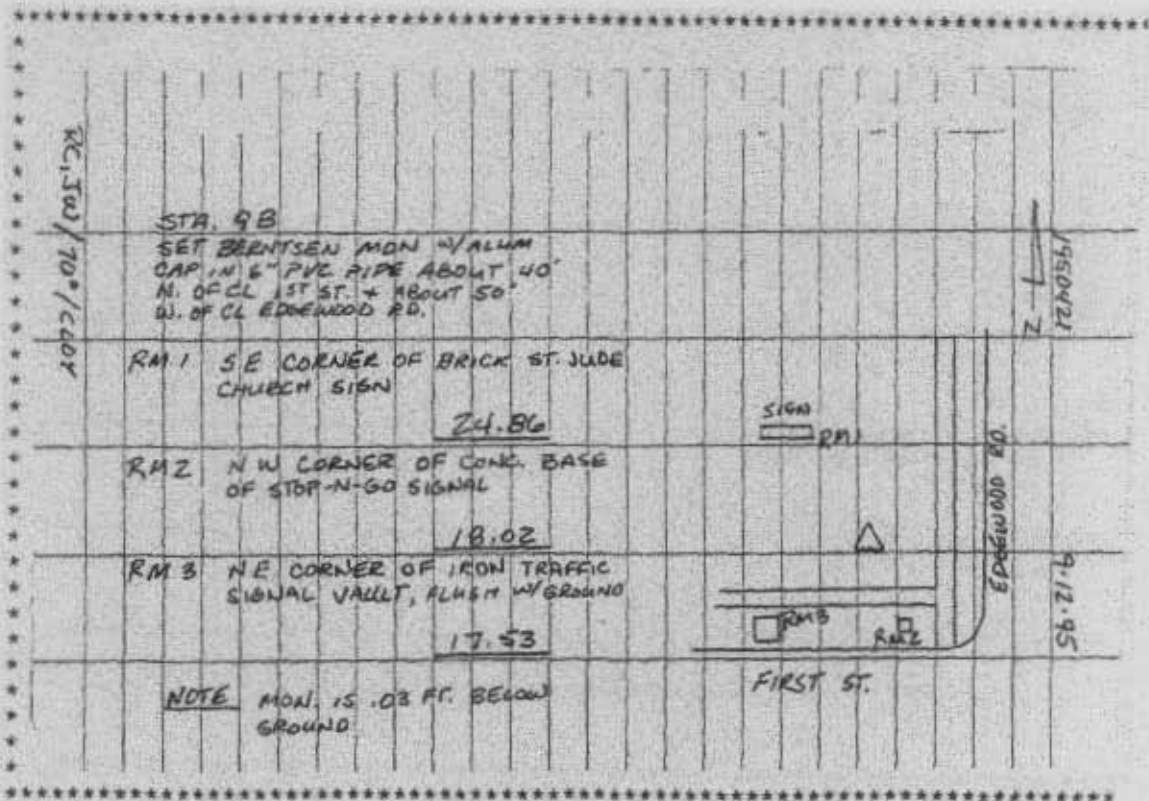 STA. 9B
SET BERNTSEN MON W/ALUM
CAP IN 6" PVC PIPE ABOUT 40'
N. OF CL 1ST ST. + ABOUT 50'
W. OF CL EDGEWOOD RD.
RM 1 SE CORNER OF BRICK ST. JUDE
CHURCH SIGN
24.86
RM 2 NW CORNER OF CONC. BASE
OF STOP-N-GO SIGNAL
18.02
RM 3 NE CORNER OF IRON TRAFFIC
SIGNAL VAULT, FLUSH W/GROUND
17.53
NOTE MON. IS .03 FT. BELOW
GROUND
SIGN
RM1
RM3
RM2
FIRST ST.
EDGEWOOD RD.
N
1950421
9.12.95
70°/CLDY